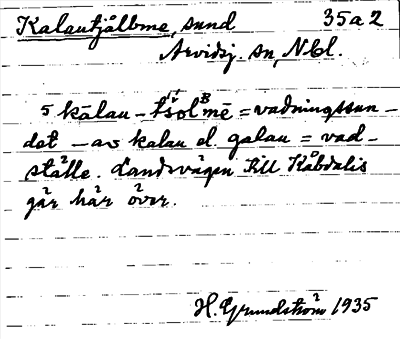 Kalautjålbme, sund 35a2
Arvidsj. sn, Nbl.
5 kālau-tsol mē = vadningssun-
det - av kalau el. galau = vad-
ställe. Landsvägen till Kåbdalis
går här över.
H. Grundström 1935